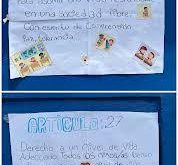 en una sociedad libre,
Con espiritu de Comprensión
Paz, tolerancia.
ARTICULO: 27
Derecho a un nivel de Vida
Adecuado. Todos los niños/as tienen